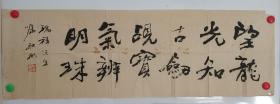 望龍
光知
古劍
覘寶
氣辨
明珠
先生